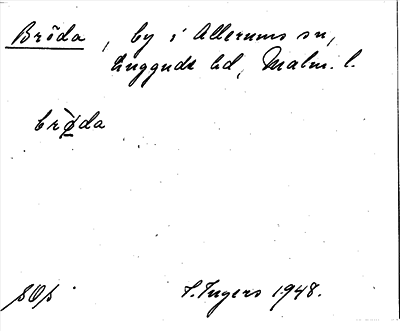 Bröda, by i Allerums sn,
Luggude hd, Malm. l.
brø̀da
sOs
S. Ingers 1948.